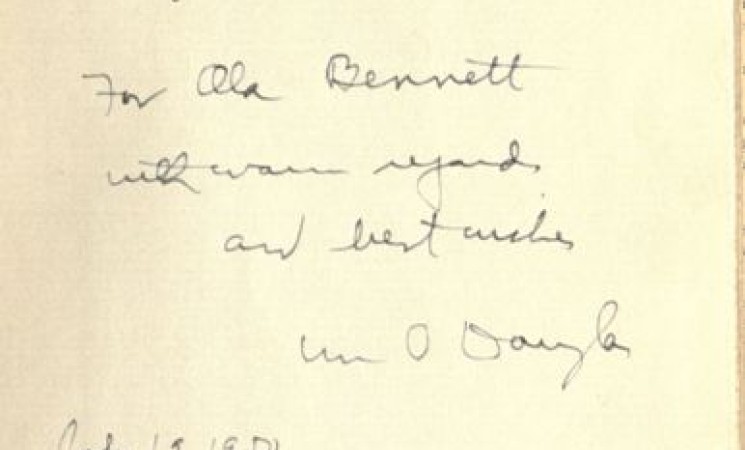 For Ola Bennett
with warm regards
and best wishes
Wm O Douglas